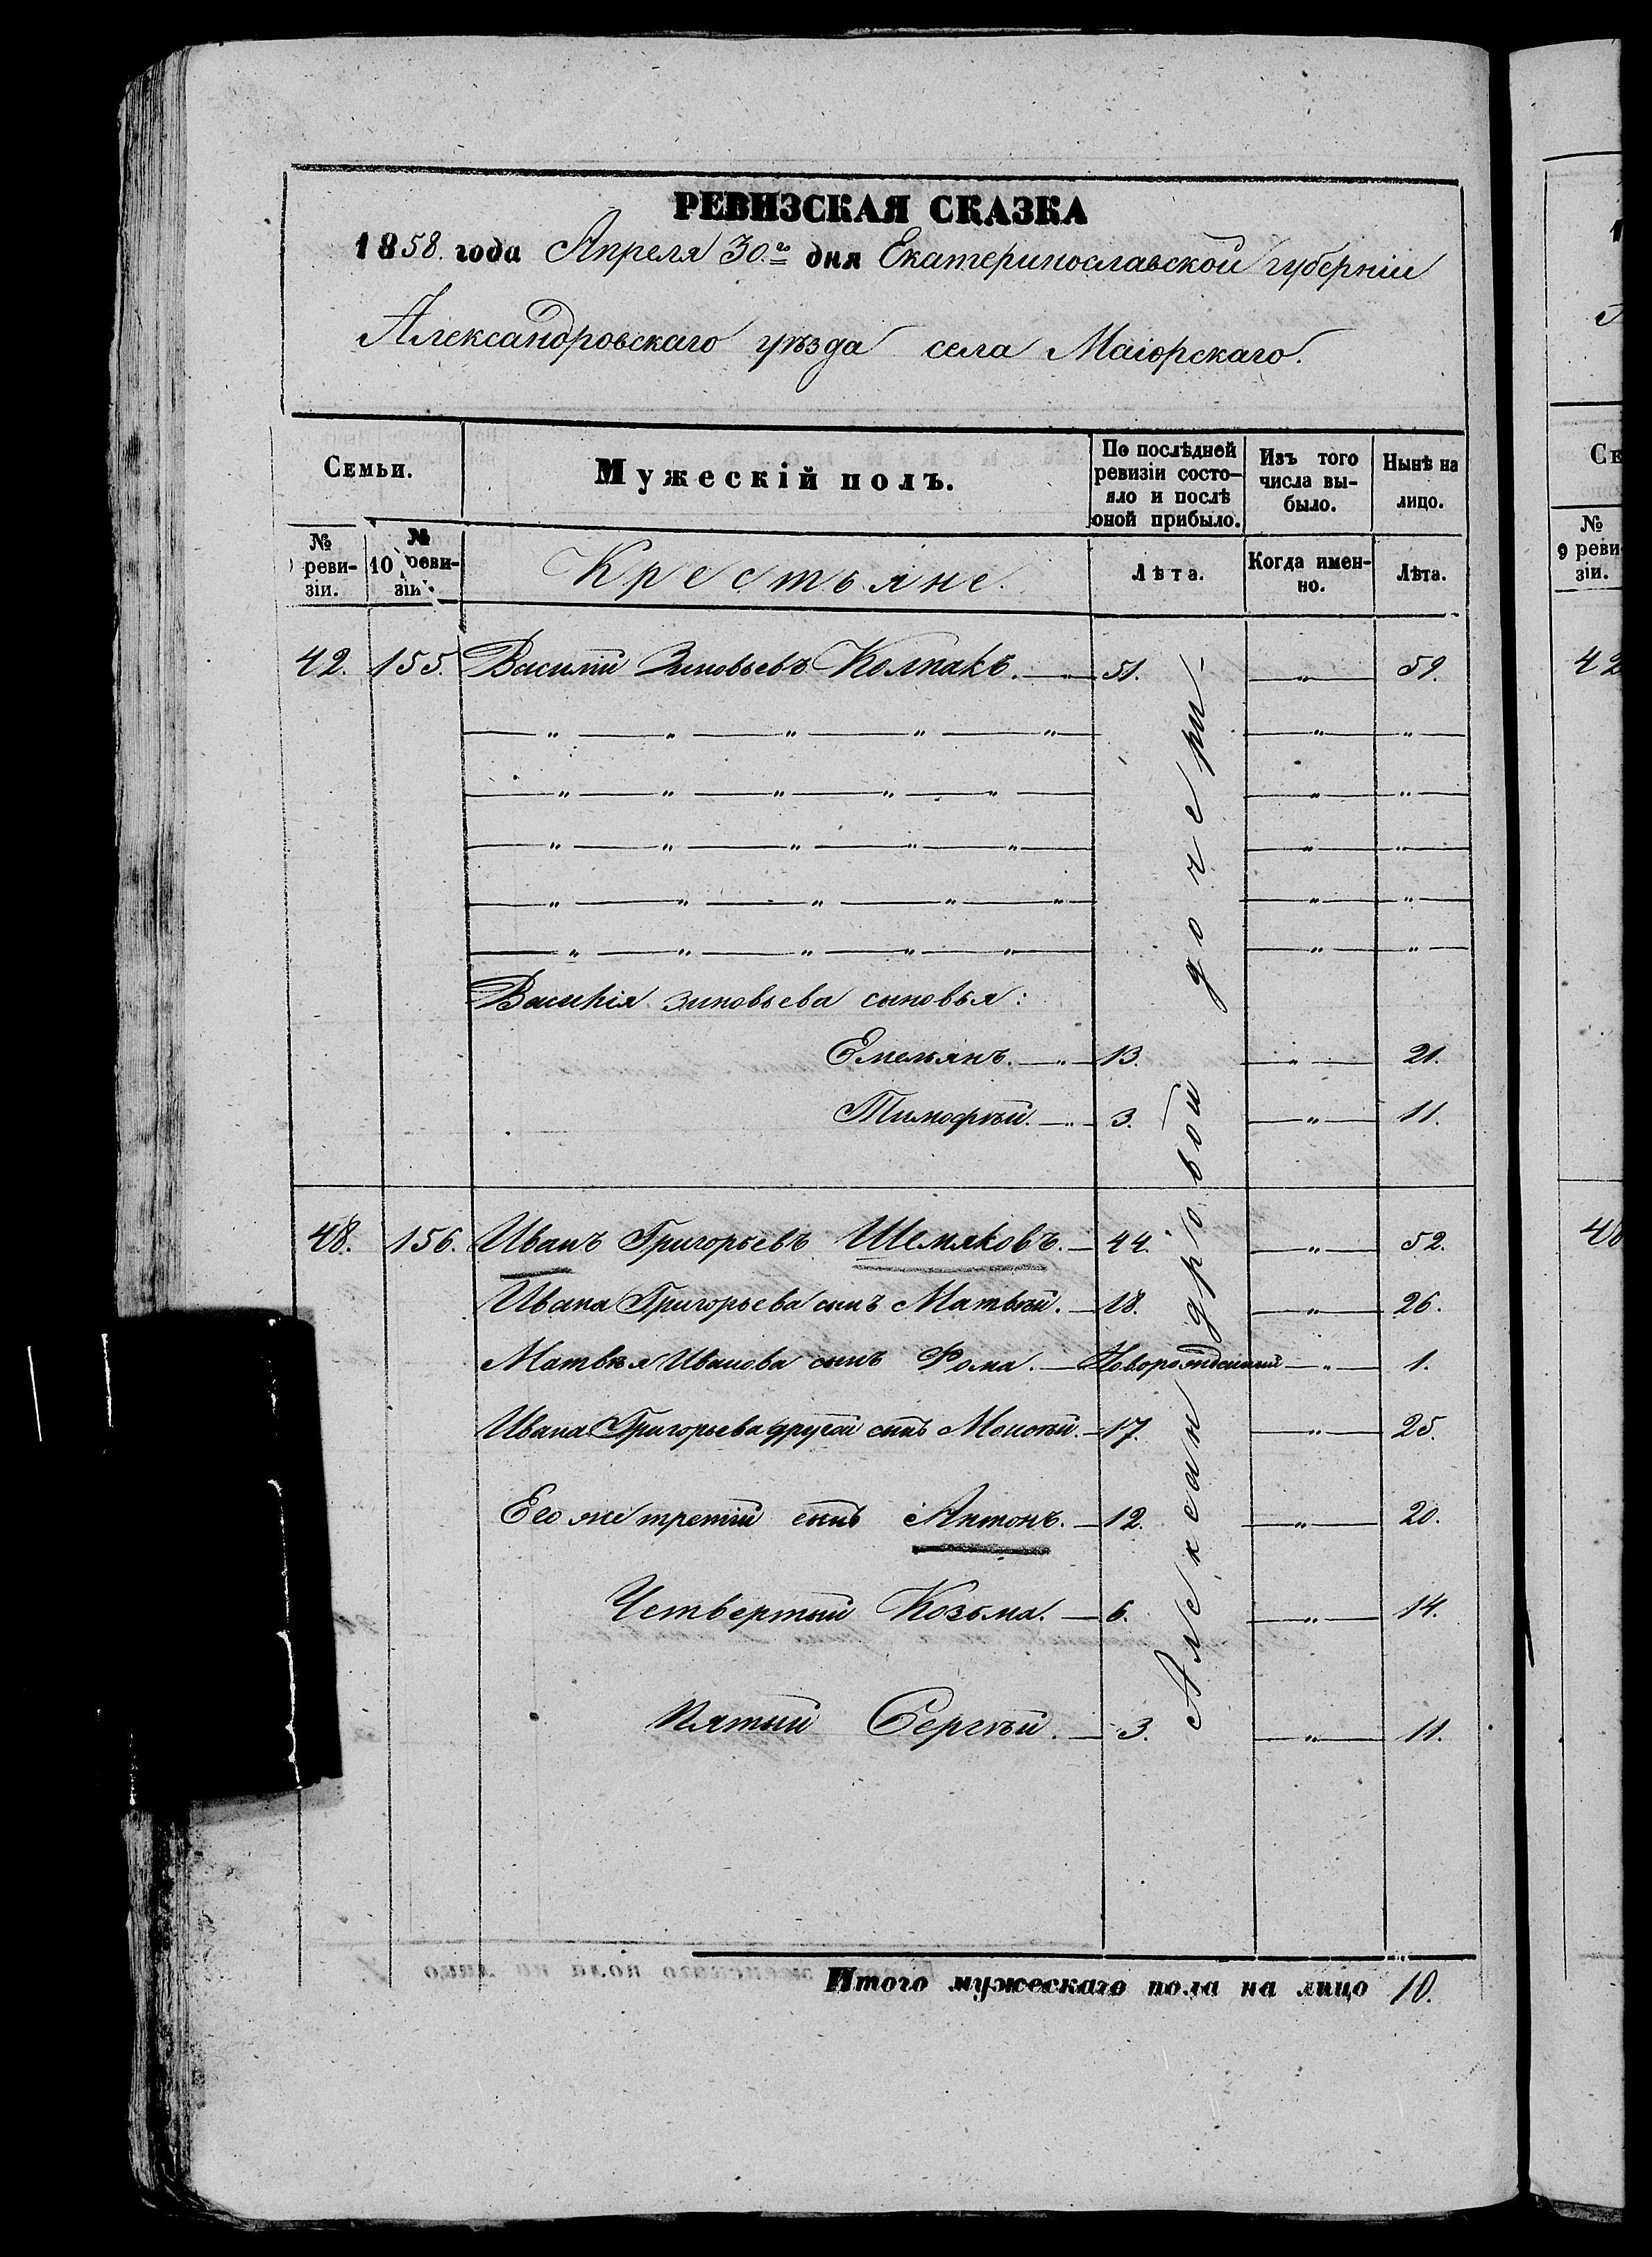 РЕВИЗСКАЯ СКАЗКА
1858. года Апреля 30.го дня Екатеринославской губерніи
Александровскаго уѣзда села Маіорскаго.
Семьи.
Мужескій полъ.
По послѣдней ревизіи состо-
яло и послѣ
оной прибыло.
Изъ того
числа вы-
было.
Нынѣ на
лицо.
№
реви-
зіи.
№
10 реви-
зіи.
Крестьяне.
Лѣта.
Когда имен-
но.
Лѣта.
42. 155. Василій Зиновьевъ Колпакъ. — „ — 51. — „ — 59.
— „ — „ — „ — „ — „ — — „ — — „ —
— „ — „ — „ — „ — „ — — „ — — „ —
— „ — „ — „ — „ — „ — — „ — — „ —
— „ — „ — „ — „ — „ — — „ — — „ —
— „ — „ — „ — „ — „ — — „ — — „ —
Василія Зиновьева сыновья:
Емельянъ. — „ — 13. — „ — 21.
Тимофѣй. — „ — 3. — „ — 11.
48. 156. Иванъ Григорьевъ Шемяковъ. — 44. — „ — 52.
Ивана Григорьева сынъ Матвѣй. — 18. — „ — 26.
Матвѣя Иванова сынъ Фома. — Новорожденный — „ — 1.
Ивана Григорьева другой сынъ Моисѣй. — 17. — „ — 25.
Его же третій сынъ Антонъ. — 12. — „ — 20.
Четвертый Козьма. — 6. — „ — 14.
Пятый Сергѣй. — 3. — „ — 11.
Александровой дочери -
Итого мужескаго пола на лицо 10.
1
Се
№
9 реви
зіи.
42
48